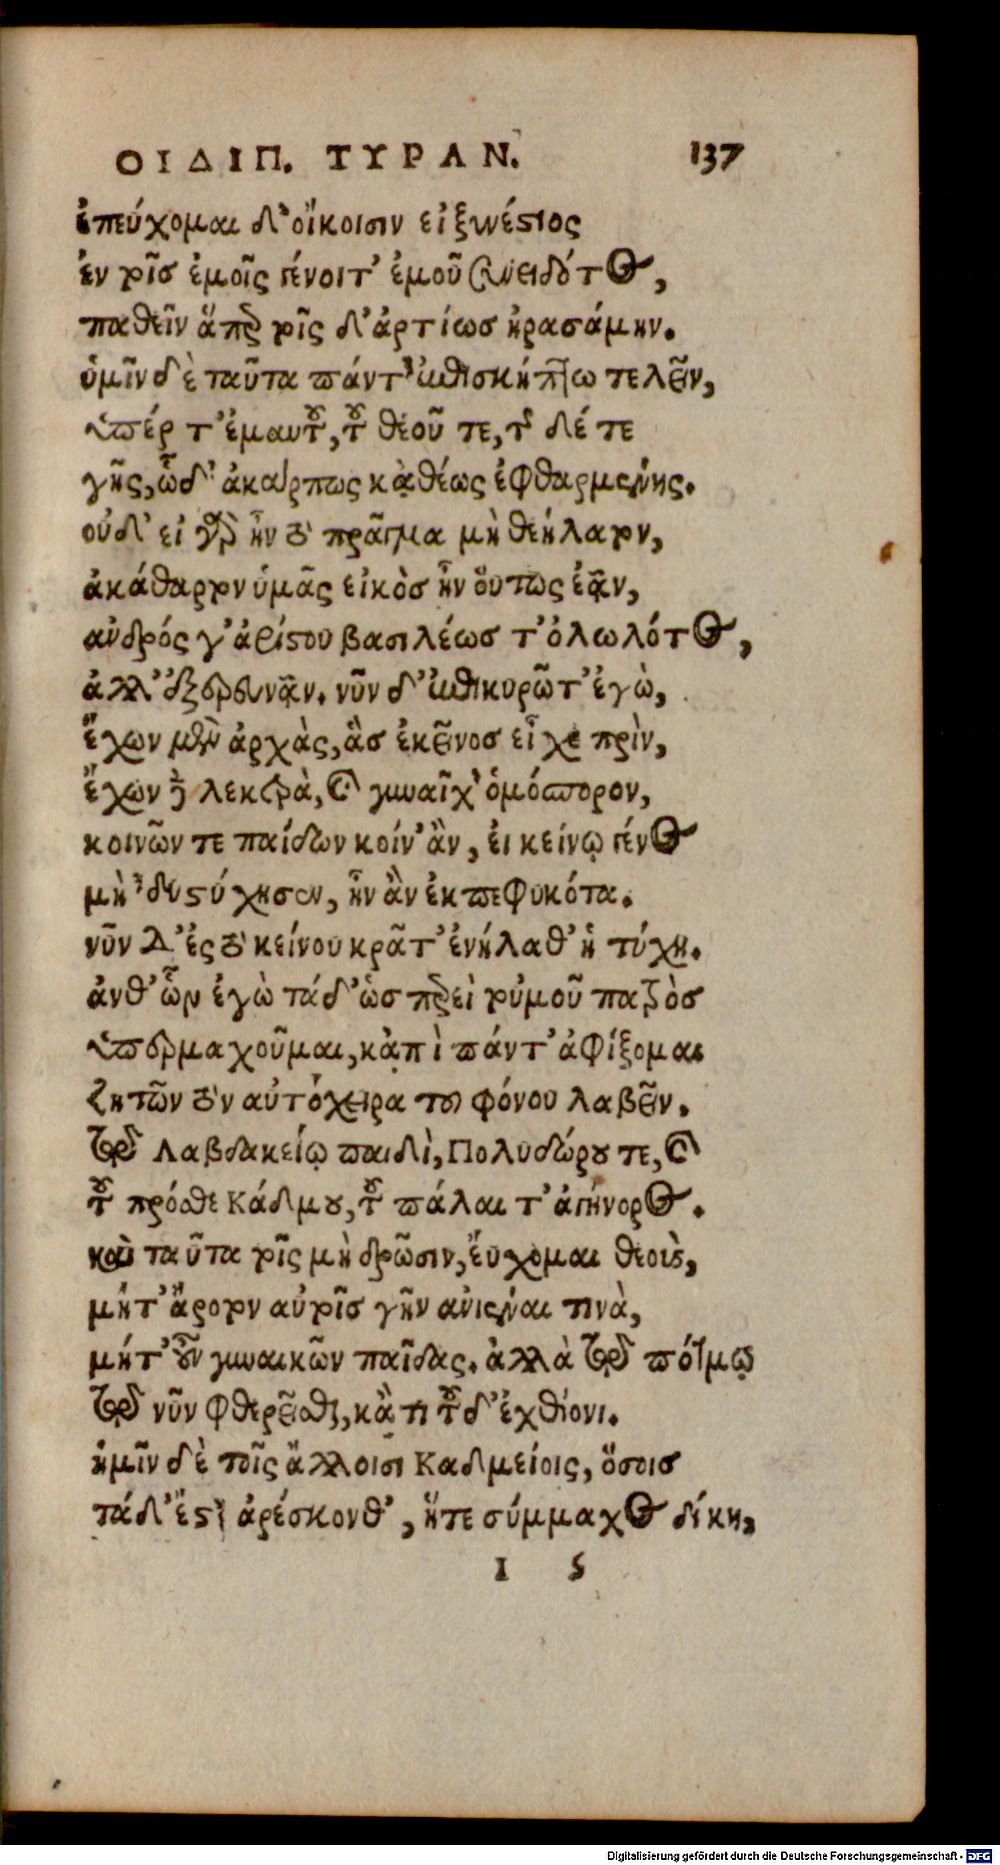 ΟΙΔΙΠ. ΤΥΡΑΝ. 137
ἐπεύχομαι δ' οἴκοισιν εἰ ξυνέστιος
ἐν τοῖς ἐμοῖς γένοιτ' ἐμοῦ συνειδότος,
παθεῖν ἅπερ τοῖς δ' ἀρτίως ἠρασάμην.
ὑμῖν δὲ ταῦτα πάντ' ἐπισκήπτω τελεῖν,
ὑπέρ τ' ἐμαυτοῦ, τοῦ θεοῦ τε, τῆς δέ τε
γῆς, ὧδ' ἀκάρπως κᾀθέως ἐφθαρμένης.
οὐδ' εἰ γὰρ ἦν τὸ πρᾶγμα μὴ θεήλατον,
ἀκάθαρτον ὑμᾶς εἰκὸς ἦν οὕτως ἐᾷν,
ἀνδρός γ' ἀρίστου βασιλέως τ' ὀλωλότος,
ἀλλ' ἐξερευνᾷν. νῦν δ' ἐπικυρῶ τ' ἐγὼ,
ἔχων μὲν ἀρχὰς, ἃς ἐκεῖνος εἶχε πρὶν,
ἔχων δὲ λεκτρὰ, καὶ γυναῖχ' ὁμόσπορον,
κοινῶν τε παίδων κοίν' ἂν, εἰ κείνῳ γένος
μὴ 'δυστύχησεν, ἦν ἂν ἐκπεφυκότα.
νῦν δ' ἐς τὸ κείνου κρᾶτ' ἐνήλαθ' ἡ τύχη.
ἀνθ' ὧν ἐγὼ τάδ' ὡσπερεὶ τοὐμοῦ πατρὸς
ὑπερμαχοῦμαι, κᾀπὶ πάντ' ἀφίξομαι
ζητῶν τὸν αὐτόχειρα τοῦ φόνου λαβεῖν.
τῷ Λαβδακείῳ παιδὶ, Πολυδώρου τε, καὶ
τοῦ πρόσθε Κάδμου, τοῦ πάλαι τ' ἀγήνορος.
καὶ ταῦτα τοῖς μὴ δρῶσιν, εὔχομαι θεοὺς,
μήτ' ἄροτον αὐτοῖς γῆν ἀνιέναι τινὰ,
μήτ' οὖν γυναικῶν παῖδας. ἀλλὰ τῷ πότμῳ
τῷ νῦν φθερεῖσθαι, κᾄτι τοῦδ' ἐχθίονι.
ἡμῖν δὲ τοῖς ἄλλοισι Καδμείοις, ὅσοις
τάδ' ἔστ' ἀρέσκονθ', ἥτε σύμμαχος δίκη,
I 5
Digitalisierung gefördert durch die Deutsche Forschungsgemeinschaft - DFG